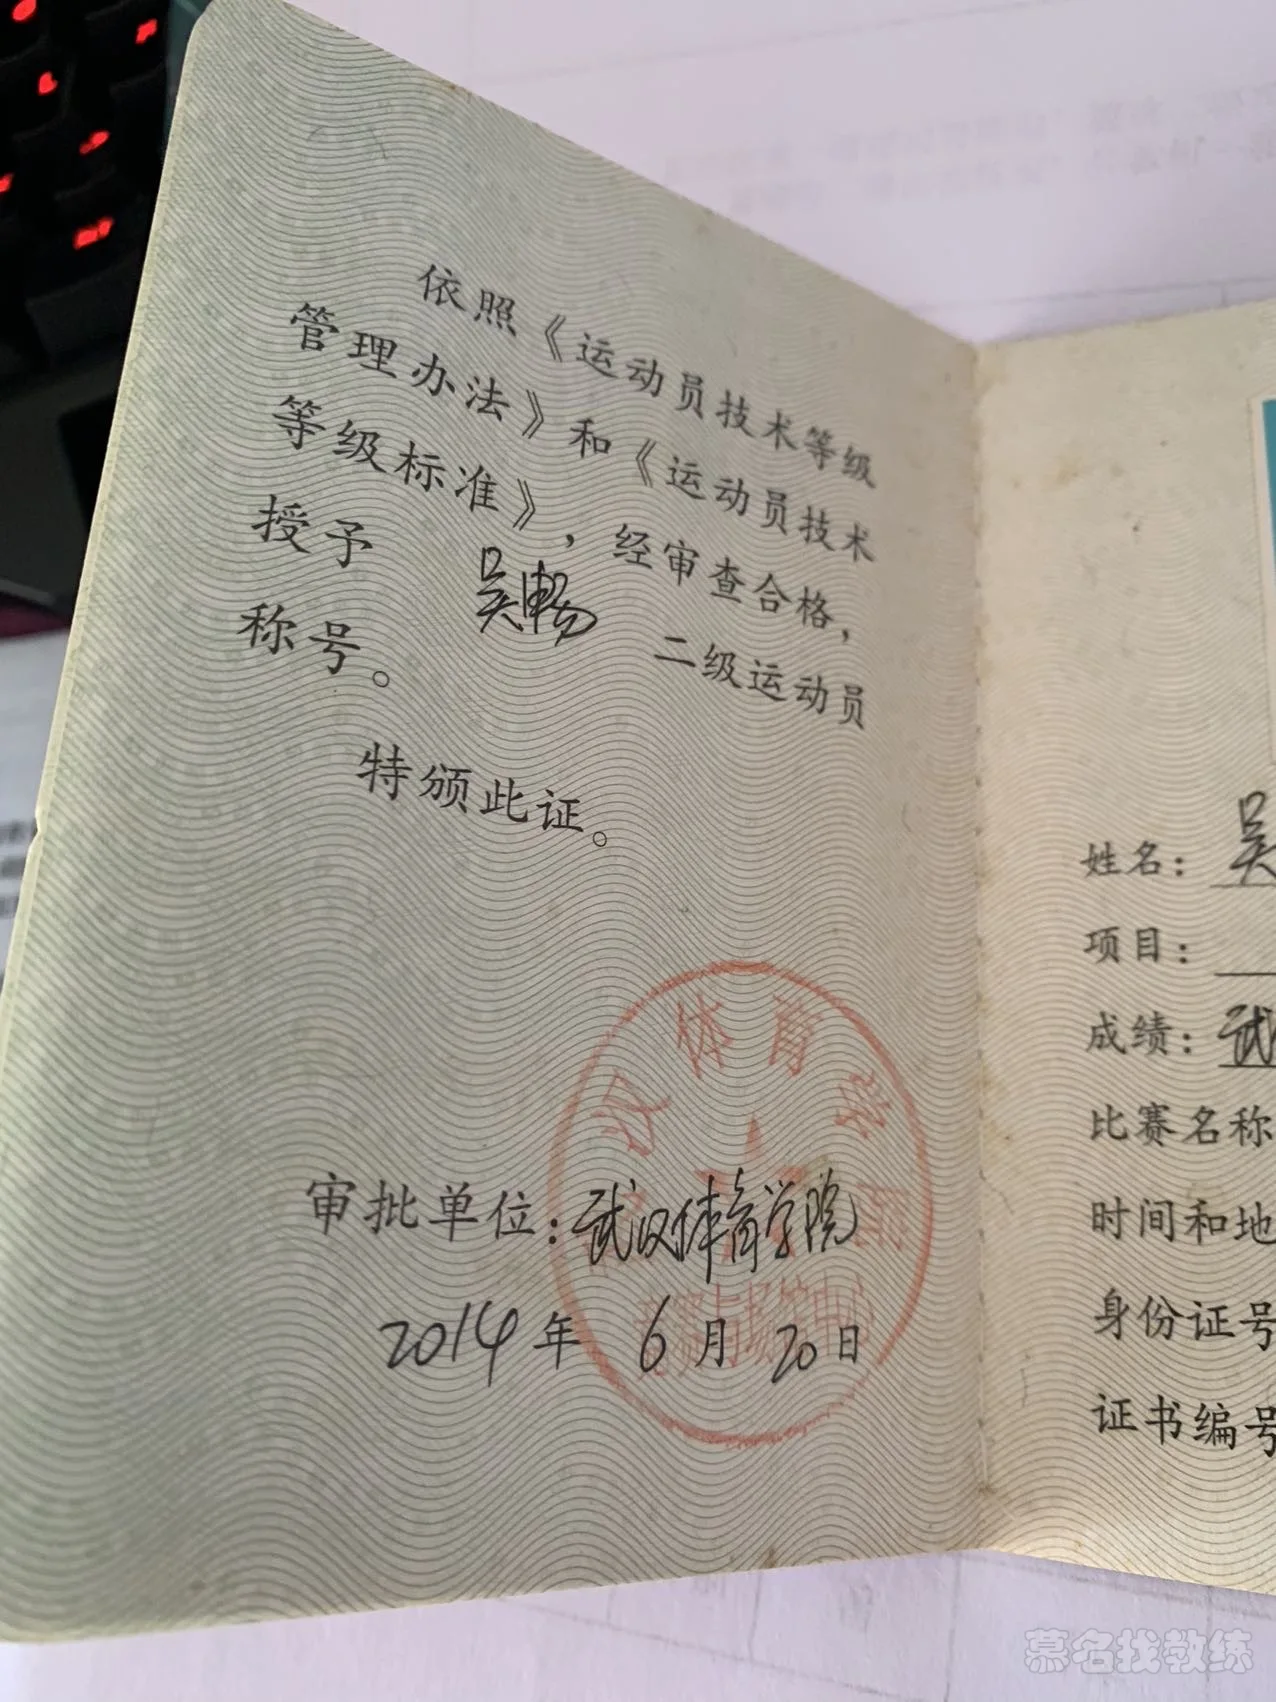 依照《运动员技术等级
管理办法》和《运动员技术
等级标准》，经审查合格，
授予 吴畅 二级运动员
称号。
特颁此证。
体育学
审批单位：武汉体育学院
竞赛与场馆中心
2014年 6月 20日
姓名：吴
项目：
成绩：武
比赛名称
时间和地
身份证号
证书编号
慕名找教练